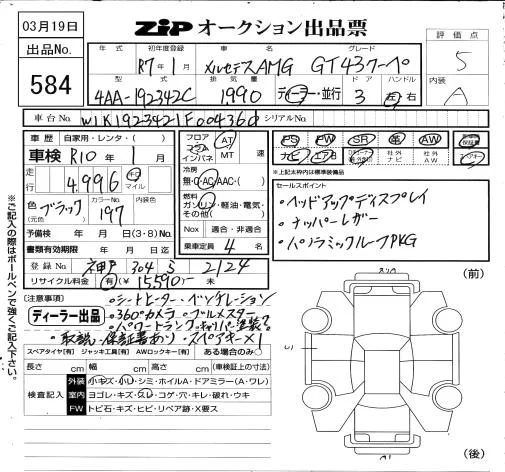 03月19日
ZIP オークション出品票
評価点
出品No.
584
年式
初年度登録
車名
グレード
R7年1月
メルセデスAMG GT43クーペ
5
型式
排気量
ドア
ハンドル
内装
4AA-192342C
1,990
ディーラー・並行
3
左 右
A
車台No.
シリアルNo.
車歴
自家用・レンタ・( )
フロア
コラム
インパネ
AT
MT
速
PS
PW
SR
革
AW
車検 R10年1月
ナビ
エアB
社外
ナビ
社外
AW
走行
4,996
キロ
マイル
冷房
無・Ⓐ・AC・AAC・( )
※上記太枠内は標準装備品
燃料
ガソリン・軽油・電気・
その他( )
セールスポイント
・ヘッドアップディスプレイ
・ナッパーレザー
・パノラミックルーフPKG
色
(元色)
ブラック
カラーNo.
197
内装色
予備検 年 月 日(3・8)No.
Nox 適合・非適合
書類有効期限 年 月 日迄
乗車定員 4 名
登録No. 神戸 304 2124
リサイクル料金 有(¥15,590)・未
(前)
(注意事項)
・シートヒーター・ベンチレーション
ディーラー出品
・360°カメラ・ブルメスター
・パワートランク
・取説・保証書あり・スペアキー×1
スペアタイヤ[有] ジャッキ工具[有] AWロックキー[有] ある場合のみ○
長さ cm 幅 cm 高さ cm (車検証上の寸法)
検査記入
外装 小キズ・小ヘコ・シミ・ホイルA・ドアミラー(A・ワレ)
室内 ヨゴレ・キズ・スレ・コゲ・穴・キレ・破れ・ウキ
FW トビ石・キズ・ヒビ・リペア跡・X要ス
(後)
※ご記入の際はボールペンで強くご記入下さい。